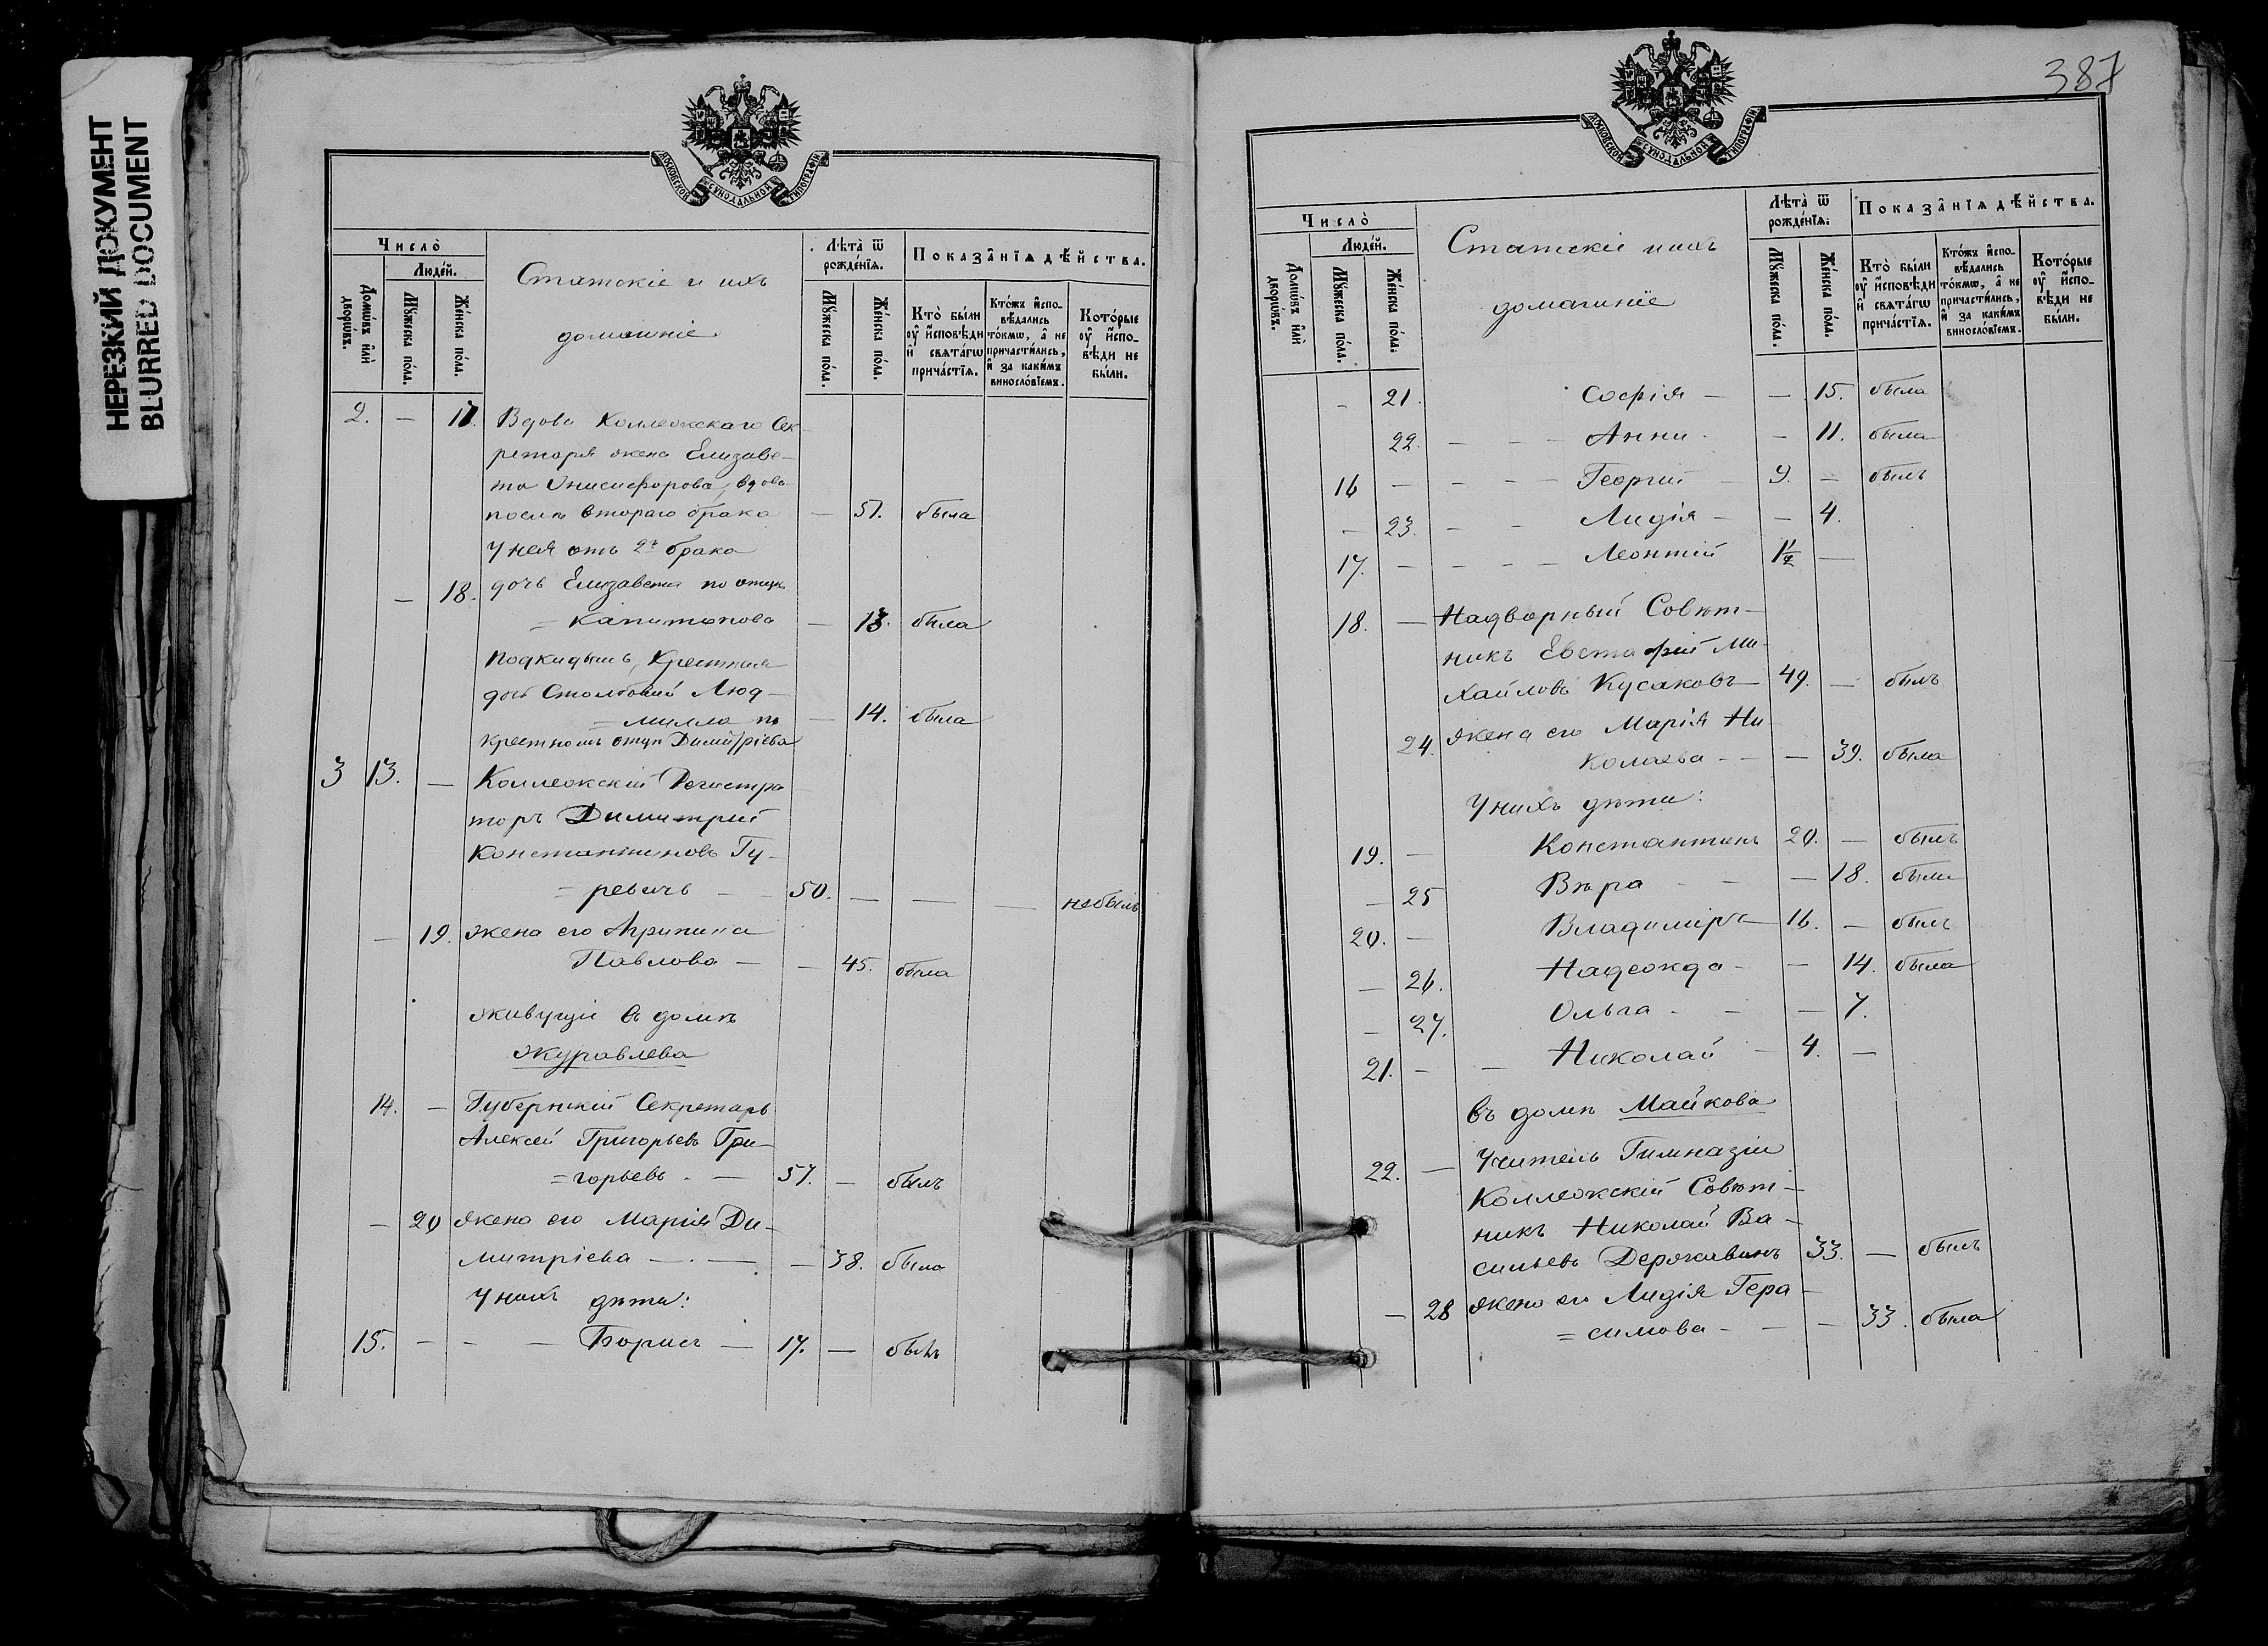 НЕРЕЗКИЙ ДОКУМЕНТ
BLURRED DOCUMENT
МОСКОВСКОЙ СѴНОДАЛЬНОЙ ТИПОГРАФІИ
Число̀
Люде́й.
Домѡ́въ и҆лѝ дворѡ́въ.
Мꙋ́жеска по́ла.
Же́нска по́ла.
Статскіе и ихъ
домашніе
Лѣта̀ ѿ рожде́нїѧ.
Мꙋ́жеска по́ла.
Же́нска по́ла.
Показа̑нїѧ дѣ́йства.
Кто̀ бы́ли ᲂу҆ и҆сповѣ́ди и҆ свѧта́гѡ прича́стїѧ.
Кто́жъ и҆сповѣ́дались то́кмѡ, а҆ не причасти́лись, и҆ за каки́мъ виносло́вїемъ.
Кото́рые ᲂу҆ и҆сповѣ́ди не бы́ли.
2. — 17. Вдова Коллежскаго Сек-
ретаря жена Елизаве-
та Онисифорова, вдова
послѣ втораго брака — 51. была
У нея отъ 2го брака
— 18. дочь Елизавета по отцѣ
= Капитонова — 13. была
Подкидышъ, Крестная
дочь Люд-
= милла по — 14. была
крестномъ отцѣ Димитріева
3 13. — Коллежскій Регистра
торъ Димитрій
Константиновъ Гу-
= ревичъ — 50. — — — не былъ
— 19. жена его Агрипина
Павлова — — 45. была
живущіе въ домѣ
Журавлева
14. — Губернскій Секретарь
Алексѣй Григорьевъ Гри-
= горьевъ — 57. — былъ
— 20 жена его Марія Ди-
митріева — — 38. была
У нихъ дѣти:
15. — — — Борисъ — 17. — былъ
387
МОСКОВСКОЙ СѴНОДАЛЬНОЙ ТИПОГРАФІИ
Число̀
Люде́й.
Домѡ́въ и҆лѝ дворѡ́въ.
Мꙋ́жеска по́ла.
Же́нска по́ла.
Статскіе и ихъ
домашніе
Лѣта̀ ѿ рожде́нїѧ.
Мꙋ́жеска по́ла.
Же́нска по́ла.
Показа̑нїѧ дѣ́йства.
Кто̀ бы́ли ᲂу҆ и҆сповѣ́ди и҆ свѧта́гѡ прича́стїѧ.
Кто́жъ и҆сповѣ́дались то́кмѡ, а҆ не причасти́лись, и҆ за каки́мъ виносло́вїемъ.
Кото́рые ᲂу҆ и҆сповѣ́ди не бы́ли.
— 21. Софія — — 15. была
22. — — — Анна — 11. была
16 — — — — Георгій — 9. — былъ
— 23. — — Лидія — — 4.
17. — — — — Леонтій —
18. — Надворный Совѣт-
никъ Евстафій Ми-
хайловъ Кусаковъ 49. — былъ
24. жена его Марія Ни-
колаева — — 39. была
У нихъ дѣти:
19. — Константинъ 20. — былъ
— 25 Вѣра — — 18. была
20. — Владиміръ 16. — былъ
— 26. Надежда — — 14. была
— 27. Ольга — — 7.
21. — — Николай — 4. —
въ домѣ Майкова
22. — Учитель Гимназіи
Коллежскій Совѣт-
никъ Николай Ва-
сильевъ Державинъ 33. — былъ
— 28 жена его Лидія Гера-
= симова — — 33. была